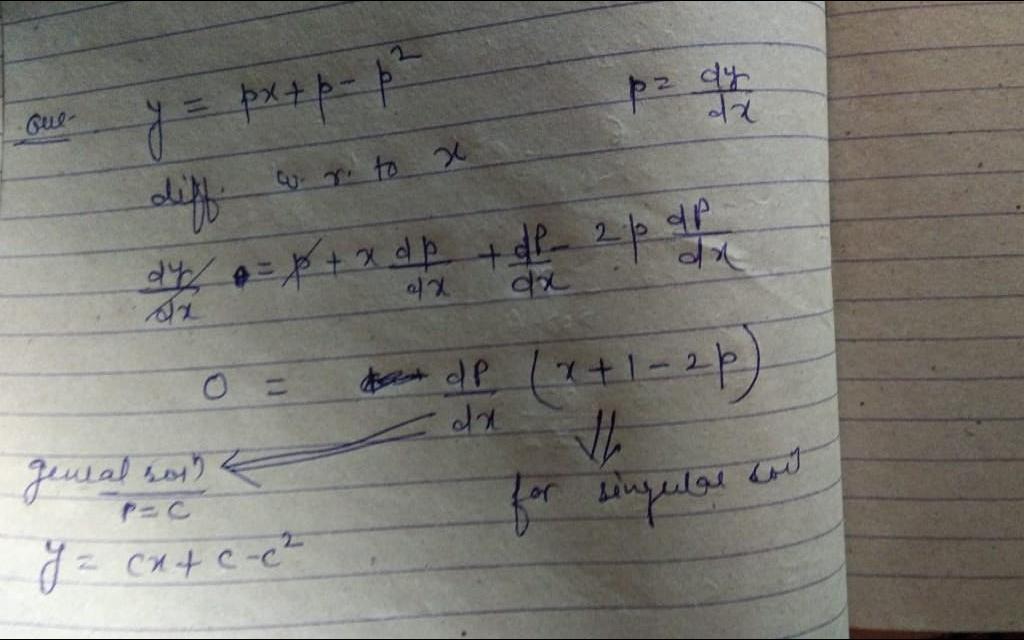 Que. y = px + p - p² p = dy/dx
diff. w. r. to x
dy/dx = p + x dp/dx + dp/dx - 2p dp/dx
0 = dp/dx (x + 1 - 2p)
general solⁿ for singular solⁿ
P = C
y = cx + c - c²